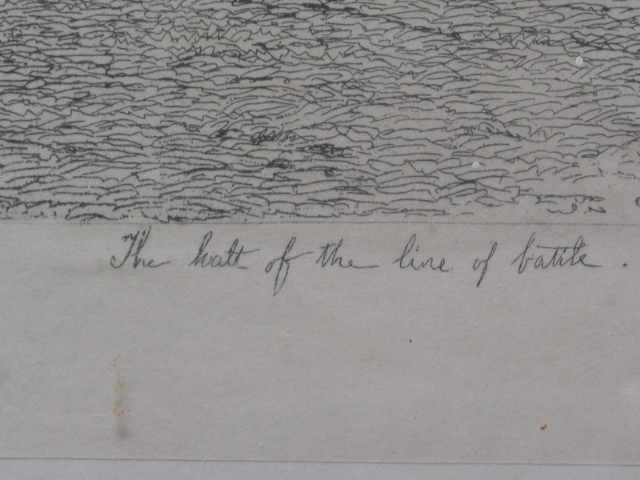 The halt of the line of battle.